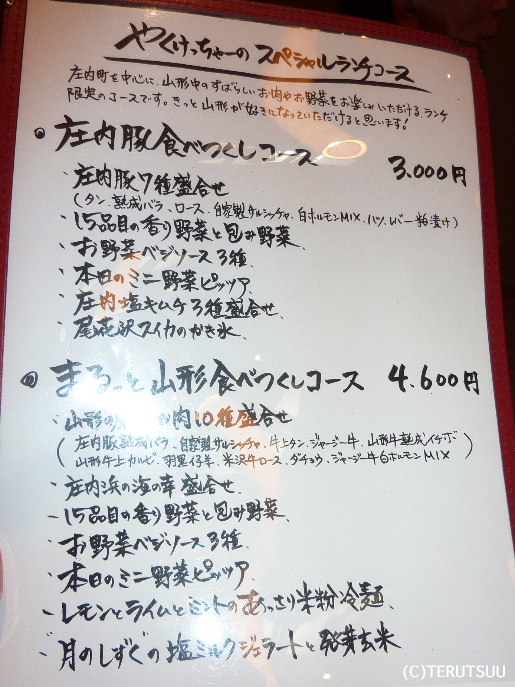 やくけっちゃーの スペシャルランチコース
庄内町を中心に、山形中のすばらしいお肉やお野菜をお楽しみいただける、ランチ
限定のコースです。きっと山形が好きになっていただけると思います!
・庄内豚食べつくしコース 3.000円
・庄内豚7種盛合せ
(タン、熟成バラ、ロース、自家製サルシッチャ、白ホルモンMIX、ハツ、レバー粕漬け)
・15品目の香り野菜と包み野菜、
・お野菜ベジソース3種、
・本日のミニ野菜ピッツァ、
・庄内塩キムチ3種盛合せ、
・尾花沢スイカのかき氷、
◎まるっと山形食べつくしコース 4.600円
・山形の お肉10種盛合せ
(庄内豚熟成バラ、自家製サルシッチャ、牛上タン、ジャージー牛、山形牛熟成イチボ
山形牛上カルビ、羽黒仔羊、米沢牛ロース、ダチョウ、ジャージー牛白ホルモンMIX)
・庄内浜の海の幸盛合せ、
-15品目の香り野菜と包み野菜、
・お野菜ベジソース3種、
・本日のミニ野菜ピッツァ、
-レモンとライムとミントのあっさり米粉冷麺、
-"月のしずく"の塩ミルクジェラートと発芽玄米
(C)TERUTSUU